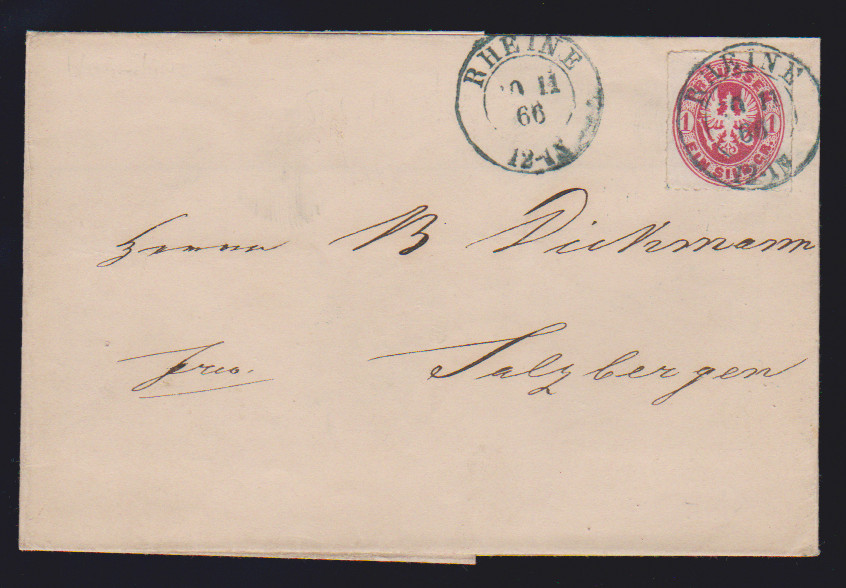 RHEINE
11
66
12-1N
RHEINE
PREUSSEN
1 1
66
EIN SILBGR.
12-1N
Herrn B Dickmann
frco. Salzbergen